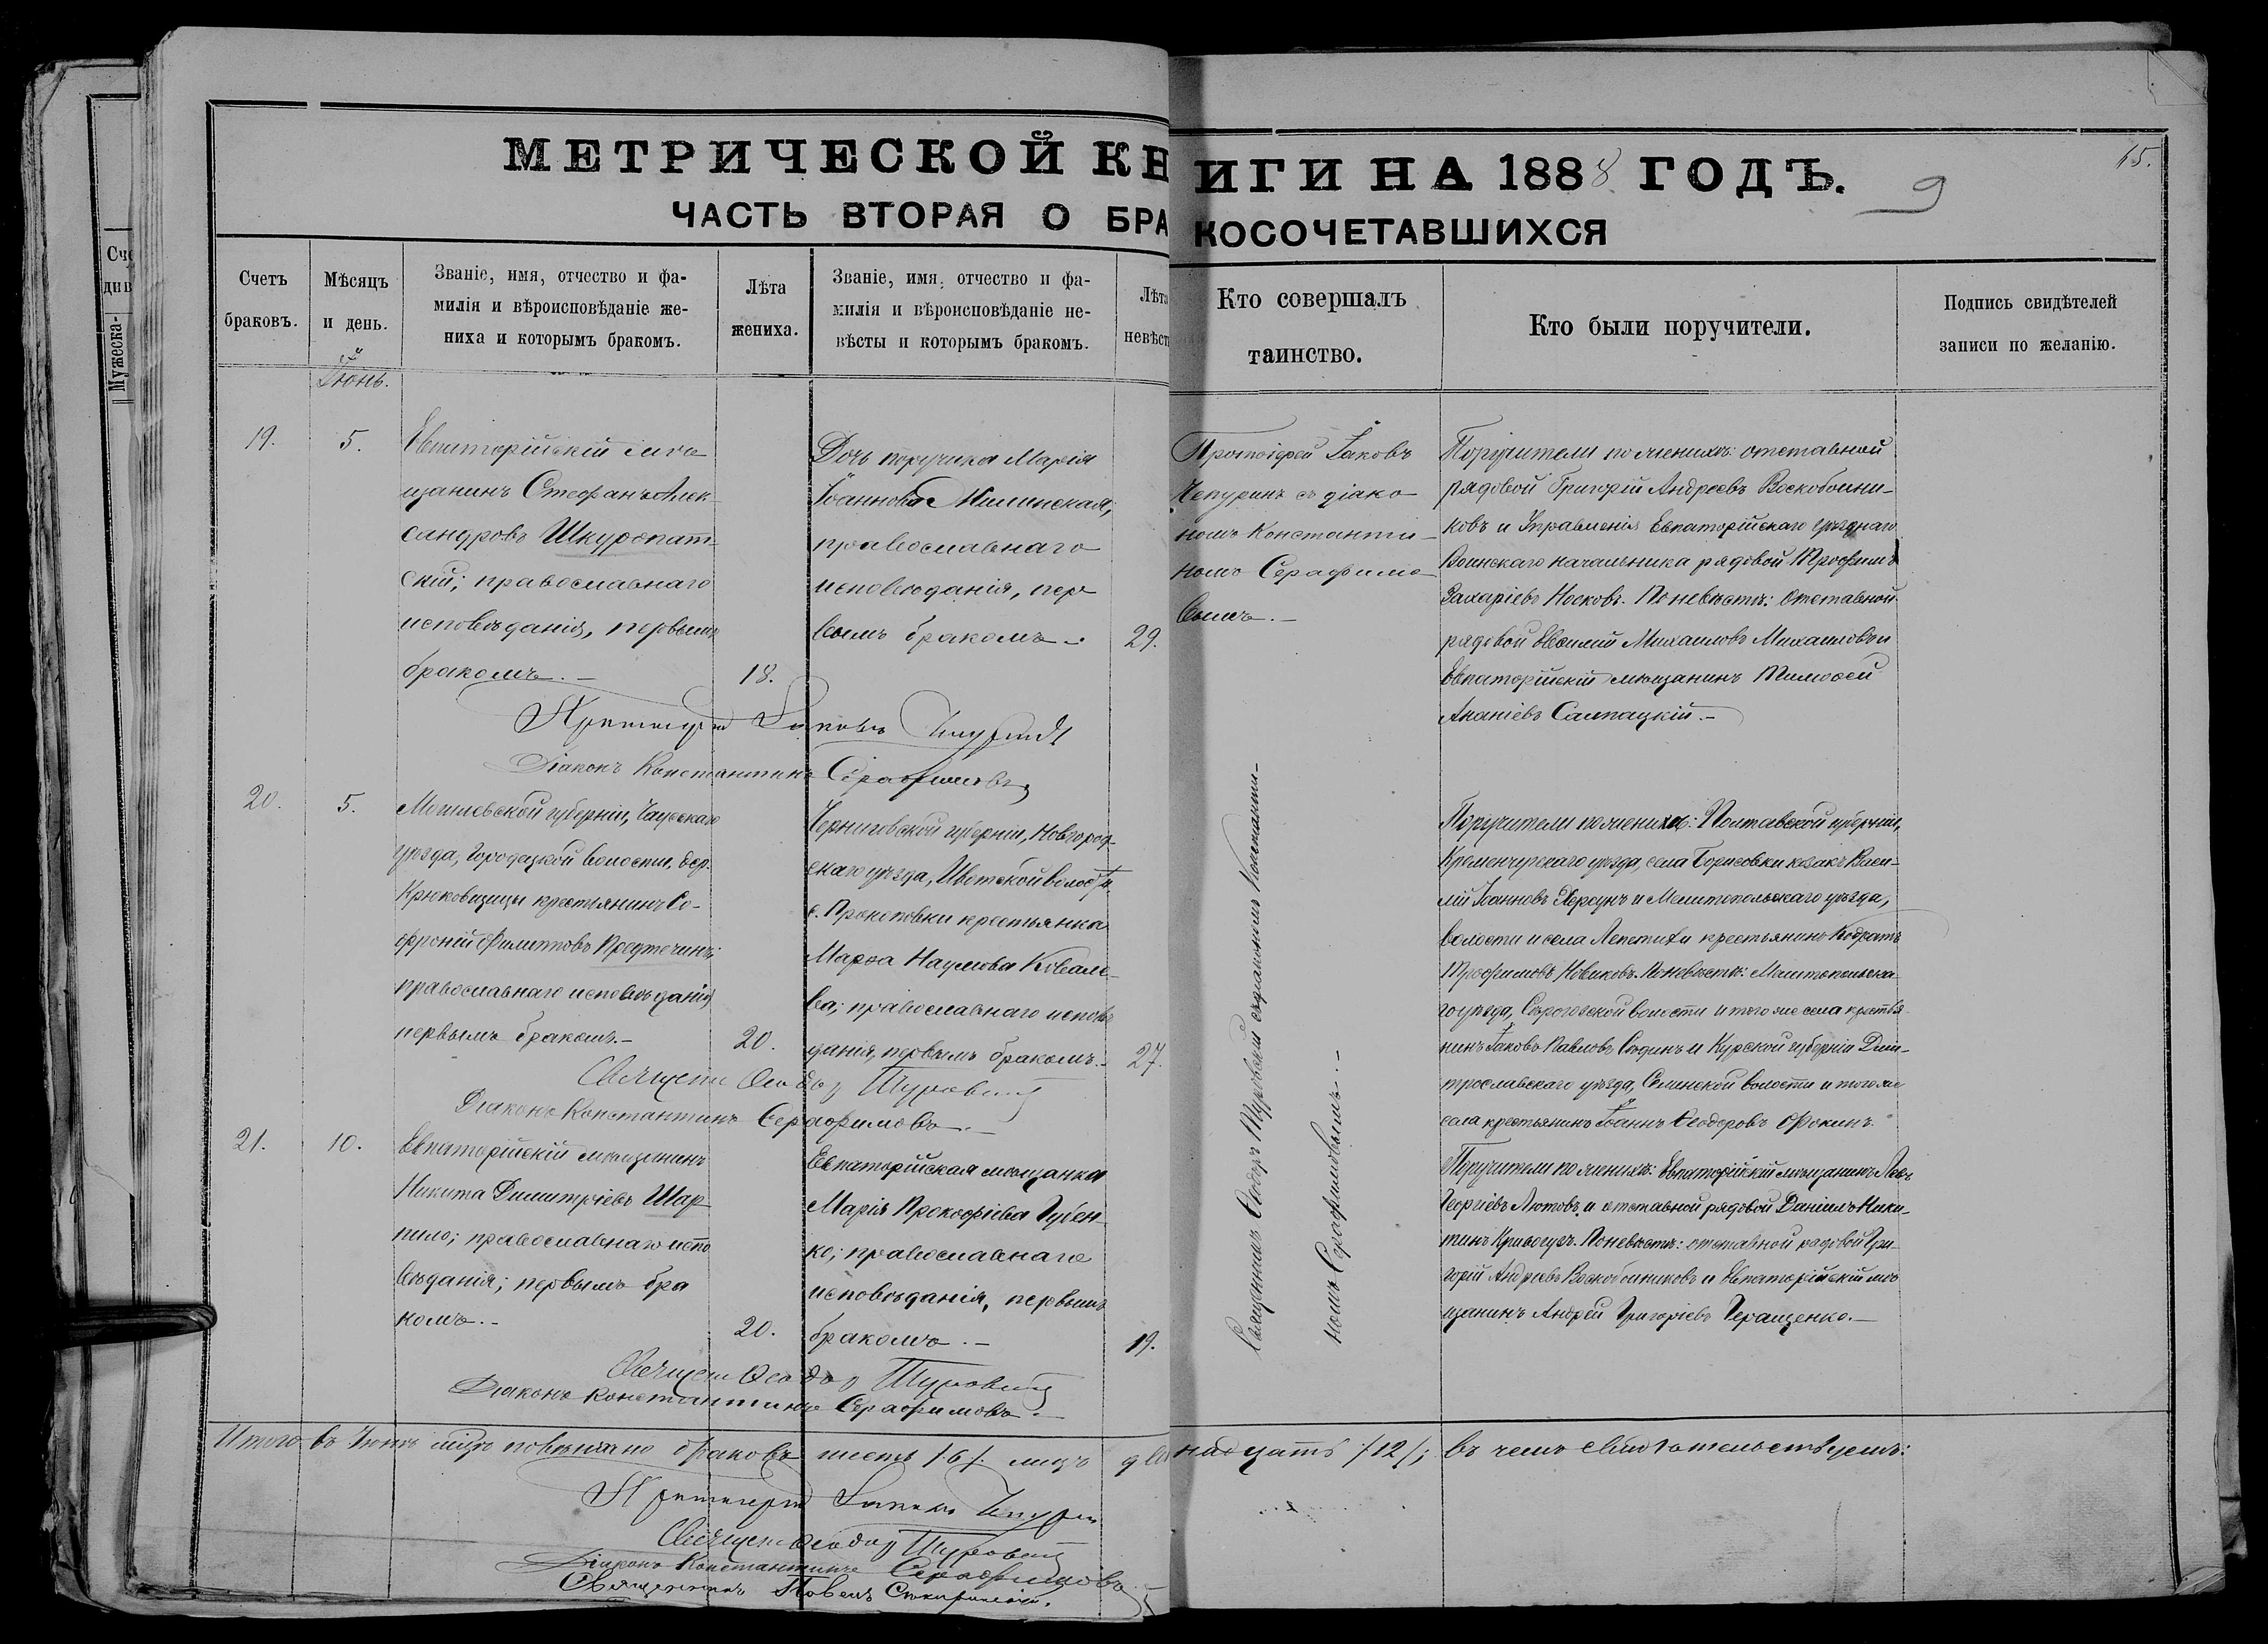 МЕТРИЧЕСКОЙ КНИГИ НА 1888 ГОДЪ.
9
65.
ЧАСТЬ ВТОРАЯ О БРАКОСОЧЕТАВШИХСЯ
Счетъ
браковъ.
Мѣсяцъ
и день.
Званіе, имя, отчество и фа-
милія и вѣроисповѣданіе же-
ниха и которымъ бракомъ.
Лѣта
жениха.
Званіе, имя, отчество и фа-
милія и вѣроисповѣданіе не-
вѣсты и которымъ бракомъ.
Лѣта
невѣст
Кто совершалъ
таинство.
Кто были поручители.
Подпись свидѣтелей
записи по желанію.
Іюнь.
19.
5.
Евпаторійскій мѣщ
щанинъ Стефанъ Алек-
сандровъ Шкуропат-
скій; православнаго
исповѣданія, первымъ
бракомъ. –
18.
Дочь поручика Марія
Іоаннова
православнаго
исповѣданія, пер
вымъ бракомъ. –
29.
Протоіерей Іаковъ
Чепуринъ съ діако-
номъ Константи-
номъ Серафимо-
вымъ. –
Поручители по женихѣ: отставной
рядовой Григорій Андреевъ Воскобойни-
ковъ и Управленія Евпаторійскаго уѣзднаго
Воинскаго начальника рядовой Трофимъ
Захаріевъ Носковъ. По невѣстѣ: отставной
рядовой Василій Михаиловъ Михаиловъ и
Евпаторійскій мѣщанинъ Тимоѳей
Ананіевъ Салпацкій. –
Протоіерей Іаковъ Чепуринъ
Діаконъ Константинъ Серафимовъ
20.
5.
Могилевской губерніи, Чаусскаго
уѣзда, Городецкой волости, дер.
Крюковщицы крестьянинъ Со-
фроній Филипповъ Предтечинъ;
православнаго исповѣданія,
первымъ бракомъ. –
20.
Черниговской губерніи, Новгород-
скаго уѣзда, волости,
с. Прокоповки крестьянка
Марѳа Наумова Ковале-
ва; православнаго исповѣ
данія, первымъ бракомъ. –
27.
Священникъ Ѳеодоръ Туровскій съ діакономъ Константи-
номъ Серафимовымъ. –
Поручители по женихѣ: Полтавской губерніи,
Кременчугскаго уѣзда, села Борисовки козакъ Васи-
лій Іоанновъ и Мелитопольскаго уѣзда,
волости и села Лепетихи крестьянинъ Кодратъ
Трофимовъ Новиковъ. По невѣстѣ: Мелитопольска-
го уѣзда, Сѣрогозской волости и того же села крестья-
нинъ Іаковъ Павловъ Сѣдинъ и Курской губерніи Дми-
тріевскаго уѣзда, волости и того же
села крестьянинъ Іоаннъ Ѳеодоровъ Фокинъ.
Священ. Ѳеодоръ Туровскій
Діаконъ Константинъ Серафимовъ. –
21.
10.
Евпаторійскій мѣщанинъ
Никита Димитріевъ Шар
пило; православнаго испо
вѣданія; первымъ бра
комъ. –
20.
Евпаторійская мѣщанка
Марія Прокофіева Губен-
ко; православнаго
исповѣданія, первымъ
бракомъ. –
19.
Поручители по женихѣ: Евпаторійскій мѣщанинъ Левъ
Георгіевъ Лютовъ и отставной рядовой Даніилъ Ники-
тинъ Кривогузъ. По невѣстѣ: отставной рядовой Гри-
горій Андреевъ Воскобойниковъ и Евпаторійскій мѣ
щанинъ Андрей Григоріевъ Геращенко. –
Священ. Ѳеодоръ Туровскій
Діаконъ Константинъ Серафимовъ. –
Итого въ Іюнѣ мѣсяцѣ повѣнчано браковъ шесть /6/. лицъ двѣнадцать /12/; въ чемъ свидѣтельствуемъ:
Протоіерей Іаковъ Чепуринъ
Священ. Ѳеодоръ Туровскій
Діаконъ Константинъ Серафимовъ. –
Священникъ Павелъ
Сче
див
Мужеска-